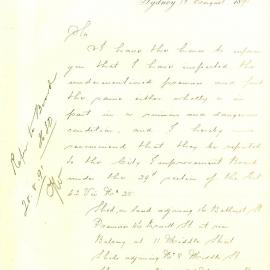 Sydney 19 August 189
Sir
I have the honor to inform
you that I have inspected the
undermentioned premises and find
the same either wholly or in
part in a ruinous and dangerous
condition, and I hereby
recommend that they be reported
to the City Improvement Board
under the 39th section of the Act
42 Vic No 25
Shed, on land adjoining 16 Bathurst St
Premises
Balcony at 11 Middle Street
Shed adjoining No 8 Middle St
Refer to Board